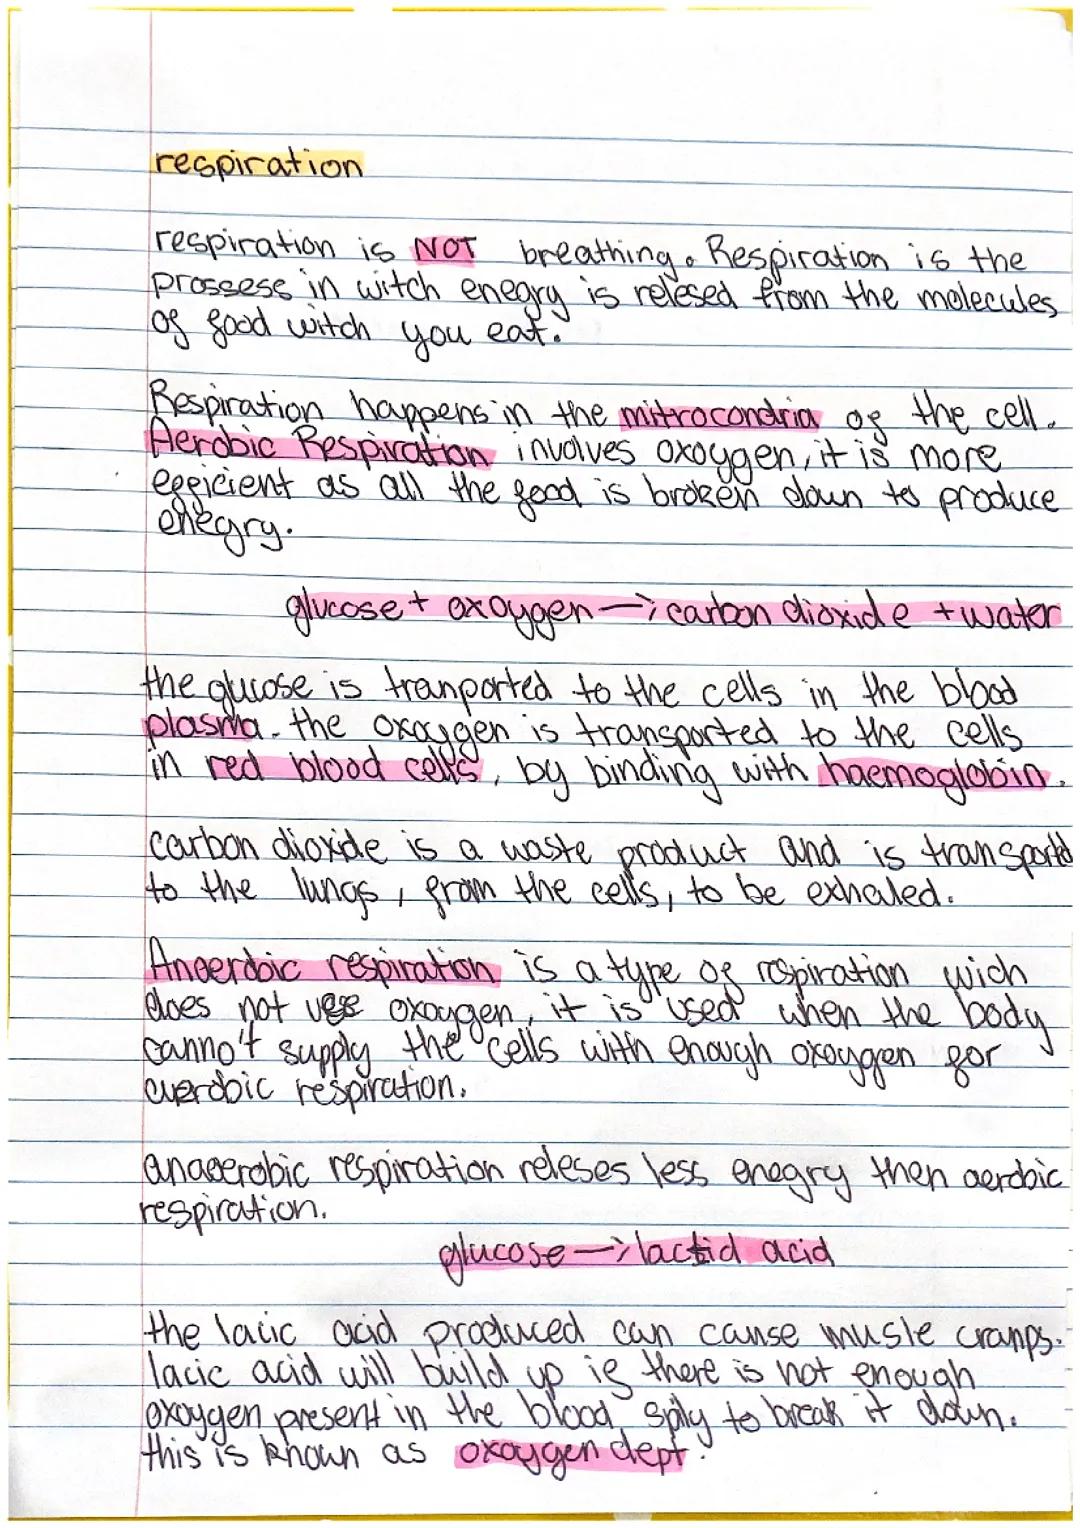 respiration
respiration is NOT breathing. Respiration is the
prossess in witch enegry is relesed from the molecules
of food witch you eat.
Respiration happens in the mitrocondria of the cell.
Aerobic Respiration involves oxoygen, it is more
efficient as all the food is broken down to produce
enegry.
glucose + oxoygen → carbon dioxide + water
the glucose is tranported to the cells in the blood
plasma. the oxoygen is transported to the cells
in red blood cells, by binding with haemoglobin.
carbon dioxide is a waste product and is transported
to the lungs, from the cells, to be exhaled.
Anaerobic respiration is a type of respiration wich
does not use oxoygen, it is used when the body
canno't supply the cells with enough oxoygen for
aerobic respiration.
anaerobic respiration releses less enegry then aerobic
respiration.
glucose → lactid acid
the lacic acid produced can cause musle cramps.
lacic acid will build up if there is not enough
oxoygen present in the blood to break it down.
this is known as oxoygen dept.